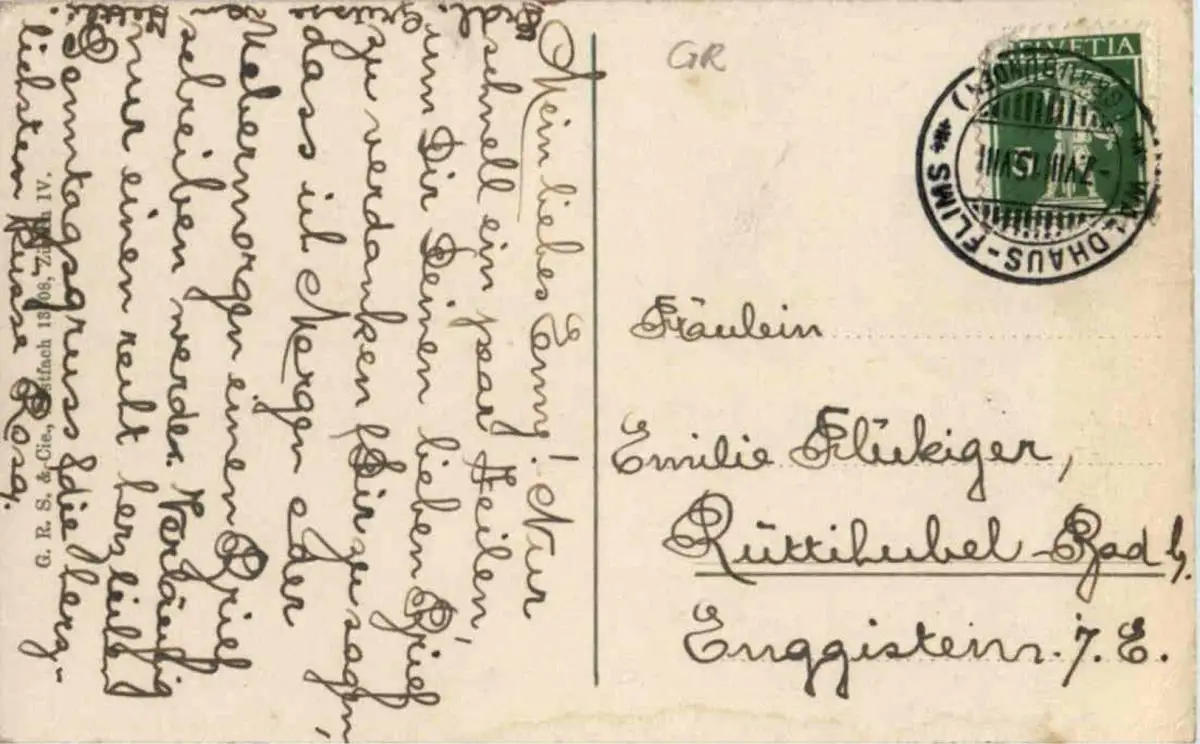 Mein liebes Emmy! Nur
schnell ein paar Zeilen,
um Dir Deinen lieben Brief
zu verdanken & Dir zu sagen,
dass ich Morgen oder
Uebermorgen einen Brief
schreiben werde. Vorläufig
nur einen recht herzlichen
Sonntagsgruss & die herz-
lichsten Küsse Rosa.
G. R. S. & Cie., Postfach 13908, Zürich IV.
GR
HELVETIA
5
WALDHAUS-FLIMS
(GRAUBÜNDEN)
-7.VIII.15.VIII
Fräulein
Emilie Flükiger,
Rüttihubel-Bad b/.
Enggistein. i. E.